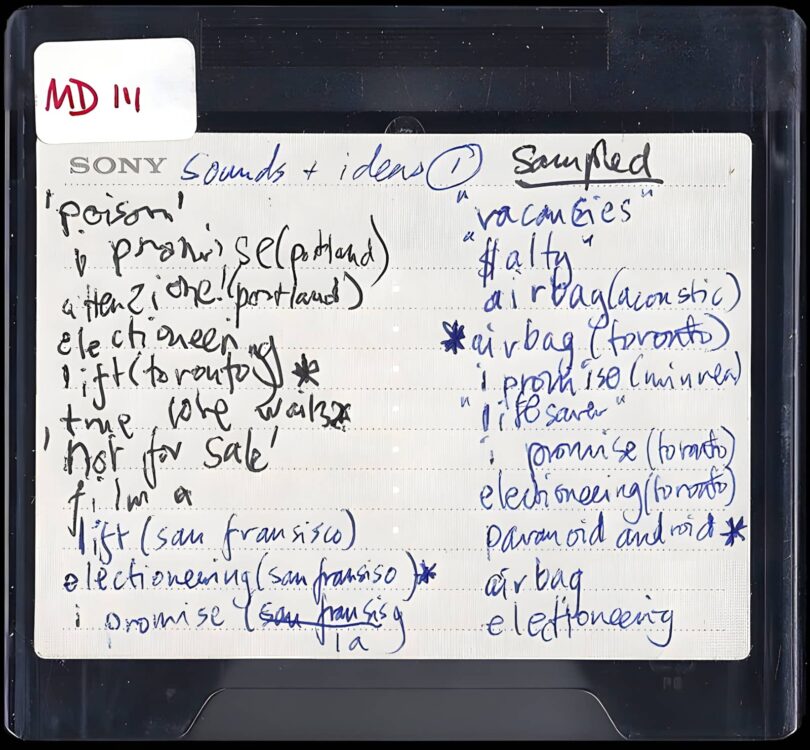 MD 111
SONY sounds + ideas ① Sampled
'poison'
i promise (portland)
attenzione! (portland)
electioneering
lift (toronto) *
true love waits *
'not for sale'
film a
lift (san fransisco)
electioneering (san fransiso) *
i promise (san fransisg
la
"vacancies"
"$alty"
airbag (acoustic)
*airbag (toronto)
i promise (minnea)
"lifesaver"
i promise (toronto)
electioneering (toronto)
paranoid android *
airbag
electioneering